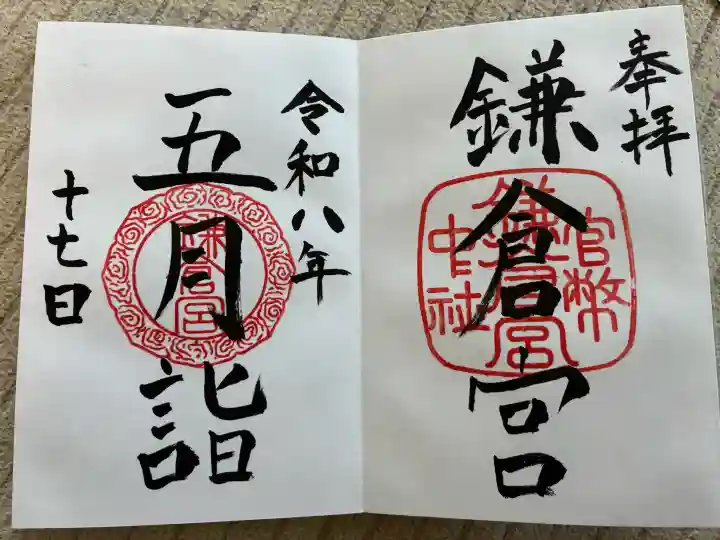 奉拝
鎌倉宮
官幣
鎌倉宮
中社
令和八年
五月詣
鎌倉宮
十七日